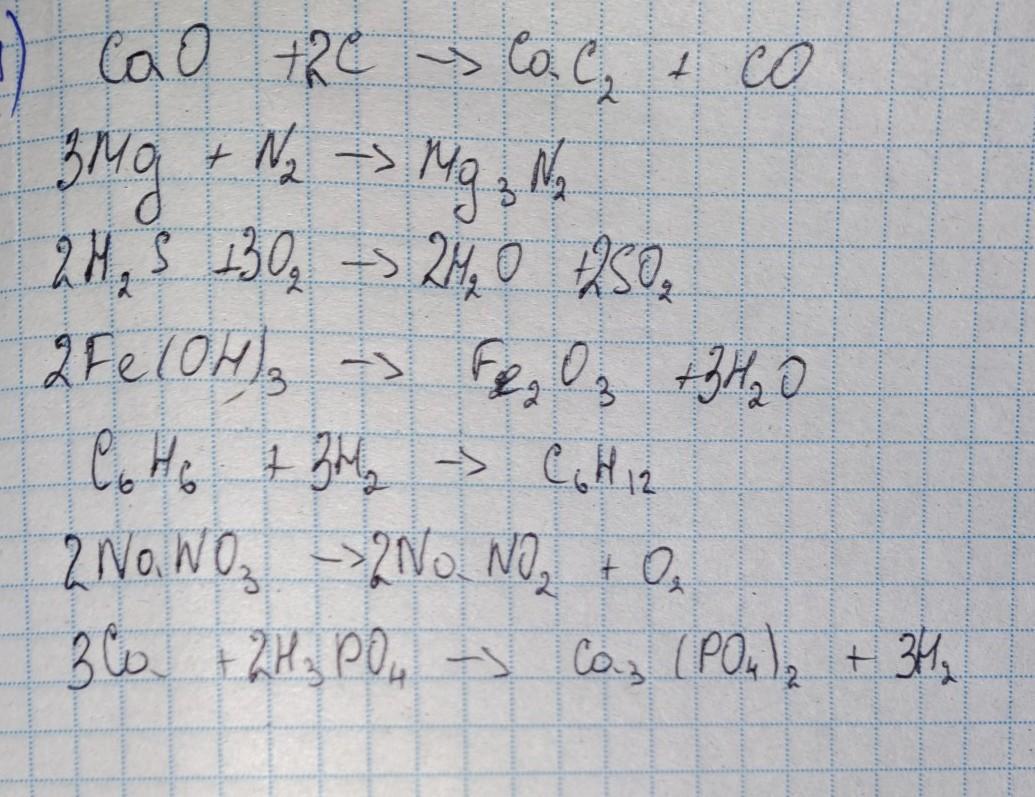 1) CaO + 2C → CaC₂ + CO
3Mg + N₂ → Mg₃N₂
2H₂S + 3O₂ → 2H₂O + 2SO₂
2Fe(OH)₃ → Fe₂O₃ + 3H₂O
C₆H₆ + 3H₂ → C₆H₁₂
2NaNO₃ → 2NaNO₂ + O₂
3Ca + 2H₃PO₄ → Ca₃(PO₄)₂ + 3H₂